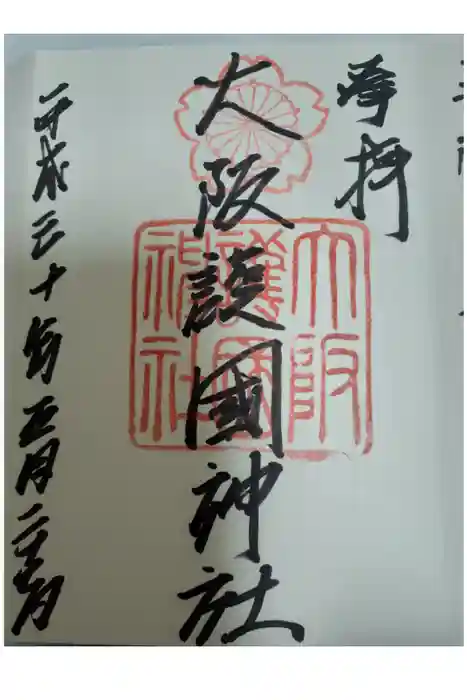 奉拝
大阪護國神社
大阪
護國
神社
平成三十年五月二十六日